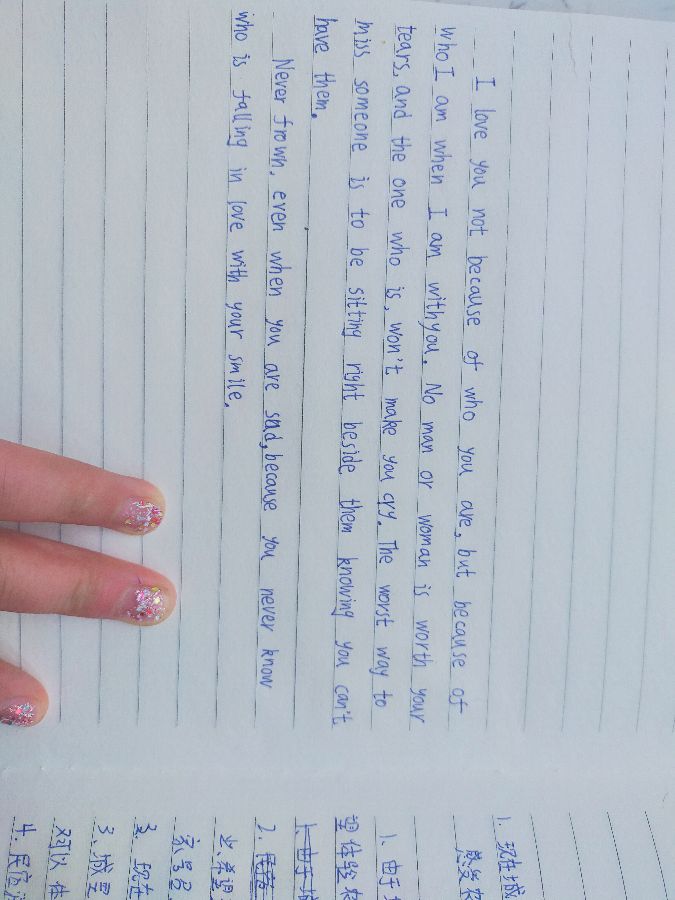 I love you not because of who you are, but because of
who I am when I am withyou. No man or woman is worth your
tears, and the one who is, won't make you cry. The worst way to
miss someone is to be sitting right beside them knowing you can't
have them.
Never frown, even when you are sad, because you never know
who is falling in love with your smile.
1. 现在城
感受农
1. 由于
望体验农
1. 由于城
2. 民宿
出.希望
农号召
3. 现在
3. 城里
对以体
4. 民宿